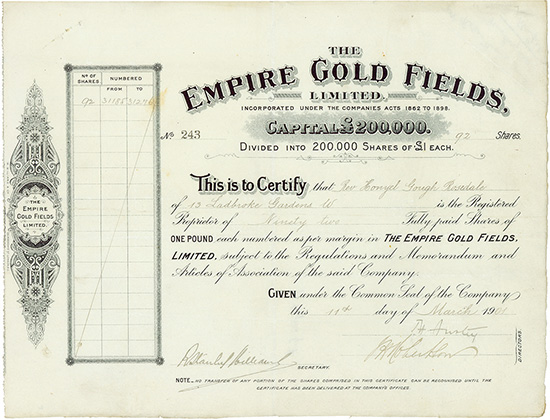 THE
EMPIRE GOLD FIELDS,
LIMITED.
INCORPORATED UNDER THE COMPANIES ACTS 1862 TO 1898.
CAPITAL £200,000.
No. 243
92 Shares.
DIVIDED INTO 200,000 SHARES OF £1 EACH.
No OF SHARES
NUMBERED
FROM TO
92
THE
EMPIRE
GOLD FIELDS
LIMITED.
This is to Certify that Rev Gough Rosedale
of 13 Ladbroke Gardens W is the Registered
Proprietor of Ninety two Fully paid Shares of
ONE POUND each numbered as per margin in THE EMPIRE GOLD FIELDS,
LIMITED, subject to the Regulations and Memorandum and
Articles of Association of the said Company.
GIVEN under the Common Seal of the Company
this 11th day of March 1901
DIRECTORS.
SECRETARY.
NOTE._ NO TRANSFER OF ANY PORTION OF THE SHARES COMPRISED IN THIS CERTIFICATE CAN BE RECOGNISED UNTIL THE
CERTIFICATE HAS BEEN DELIVERED AT THE COMPANY'S OFFICES.